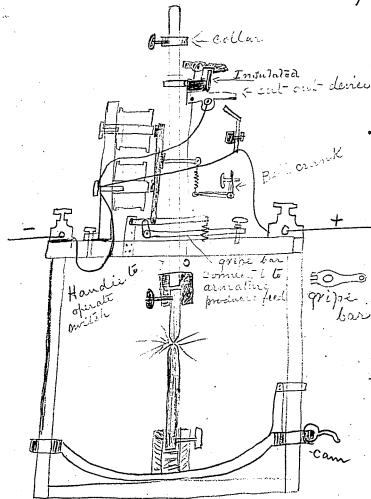 collar
Insulated
cut out device
Bell crank
-
+
Handle to
operate
switch
gripe bar
connect to
armature
produces feed
gripe
bar
cam